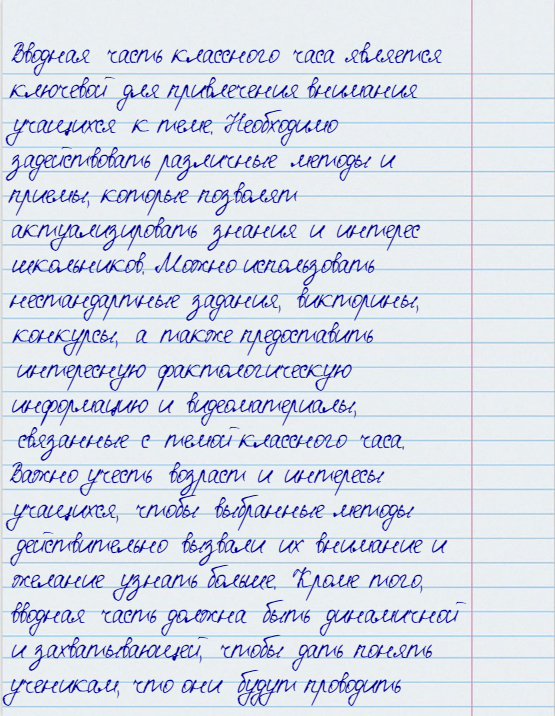 Вводная часть классного часа является
ключевой для привлечения внимания
учащихся к теме. Необходимо
задействовать различные методы и
приемы, которые позволят
актуализировать знания и интерес
школьников. Можно использовать
нестандартные задания, викторины,
конкурсы, а также предоставить
интересную фактологическую
информацию и видеоматериалы,
связанные с темой классного часа.
Важно учесть возраст и интересы
учащихся, чтобы выбранные методы
действительно вызвали их внимание и
желание узнать больше. Кроме того,
вводная часть должна быть динамичной
и захватывающей, чтобы дать понять
ученикам, что они будут проводить